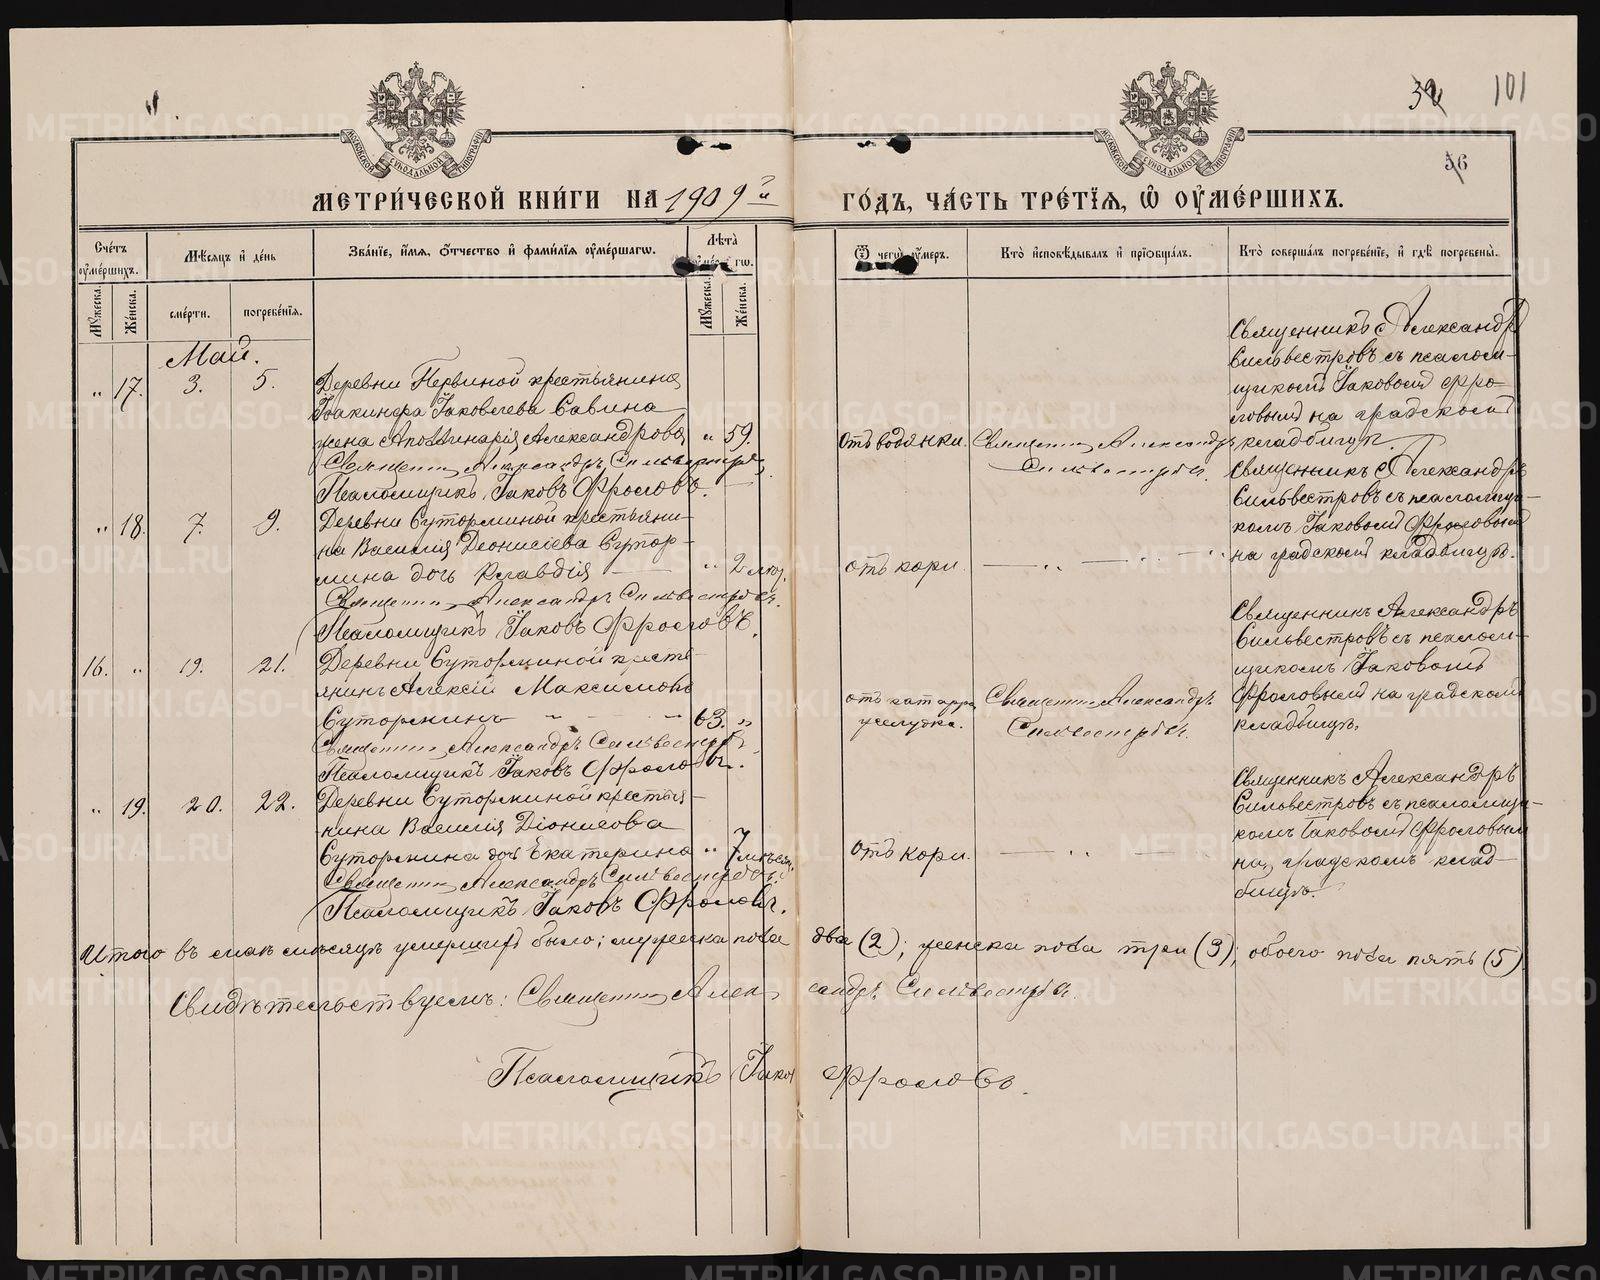 101
МЕТРИ́ЧЕСКОЙ КНИ́ГИ НА 1909й ГО́ДЪ, ЧА́СТЬ ТРЕ́ТІѦ, Ѡ҆ ОУ҆МЕ́РШИХЪ.
Сче́тъ оу҆ме́ршихъ.
Мѣ́сяцъ и҆ де́нь
Зва́ніе, и҆́мя, о҆́тчество и҆ фами́лія оу҆ме́ршагѡ.
Лѣ́та
Ѿ чегѡ̀ оу҆́меръ.
Кто̀ и҆сповѣ́дывалъ и҆ прїѡбща́лъ.
Кто̀ соверша́лъ погребе́ніе, и҆ гдѣ̀ погребены̀.
Мꙋ́жеска.
Же́нска.
сме́рти.
погребе́нія.
Мꙋ́жеска.
Же́нска.
Май.
" 17. 3. 5.
Деревни Первиной крестьянина
Іоакинфа Іаковлева Савина
жена Аполлинарія Александрова " 59.
Священник Александръ Сильвестровъ
Псаломщикъ Іаковъ Фроловъ.
отъ водянки.
Священник Александръ
Сильвестровъ.
Священникъ Александръ
Сильвестровъ съ псалом-
щикомъ Іаковомъ Фро-
ловымъ на градскомъ
кладбищѣ.
" 18. 7. 9.
Деревни Суторминой крестьяни-
на Василія Діонисіева Сутор-
мина дочь Клавдія " 2
Священник Александръ Сильвестровъ.
Псаломщикъ Іаковъ Фроловъ.
отъ кори. — " — " —
Священникъ Александръ
Сильвестровъ съ псаломщи-
комъ Іаковомъ Фроловымъ
на градскомъ кладбищѣ.
16. " 19. 21.
Деревни Суторминой кресть-
янинъ Алексій Максимовъ
Суторминъ " — — " 63. "
Священник Александръ Сильвестровъ
Псаломщикъ Іаковъ Фроловъ.
отъ катарра
желудка.
Священник Александръ
Сильвестровъ.
Священникъ Александръ
Сильвестровъ съ псалом-
щикомъ Іаковомъ
Фроловымъ на градскомъ
кладбищѣ.
" 19. 20. 22.
Деревни Суторминой крестья-
нина Василія Діонисова
Сутормина дочь Екатерина " 7 мѣсяц.
Священник Александръ Сильвестровъ.
Псаломщикъ Іаковъ Фроловъ.
Отъ кори. — " —
Священникъ Александръ
Сильвестровъ съ псаломщи-
комъ Іаковомъ Фроловым
на градскомъ клад-
бищѣ.
Итого въ маѣ мѣсяцѣ умершихъ было: мужеска пола два (2); женска пола три (3); обоего пола пять (5)
Свидѣтельствуемъ: Священник Александръ Сильвестровъ.
Псаломщикъ Іаковъ Фроловъ.
METRIKI.GASO-URAL.RU